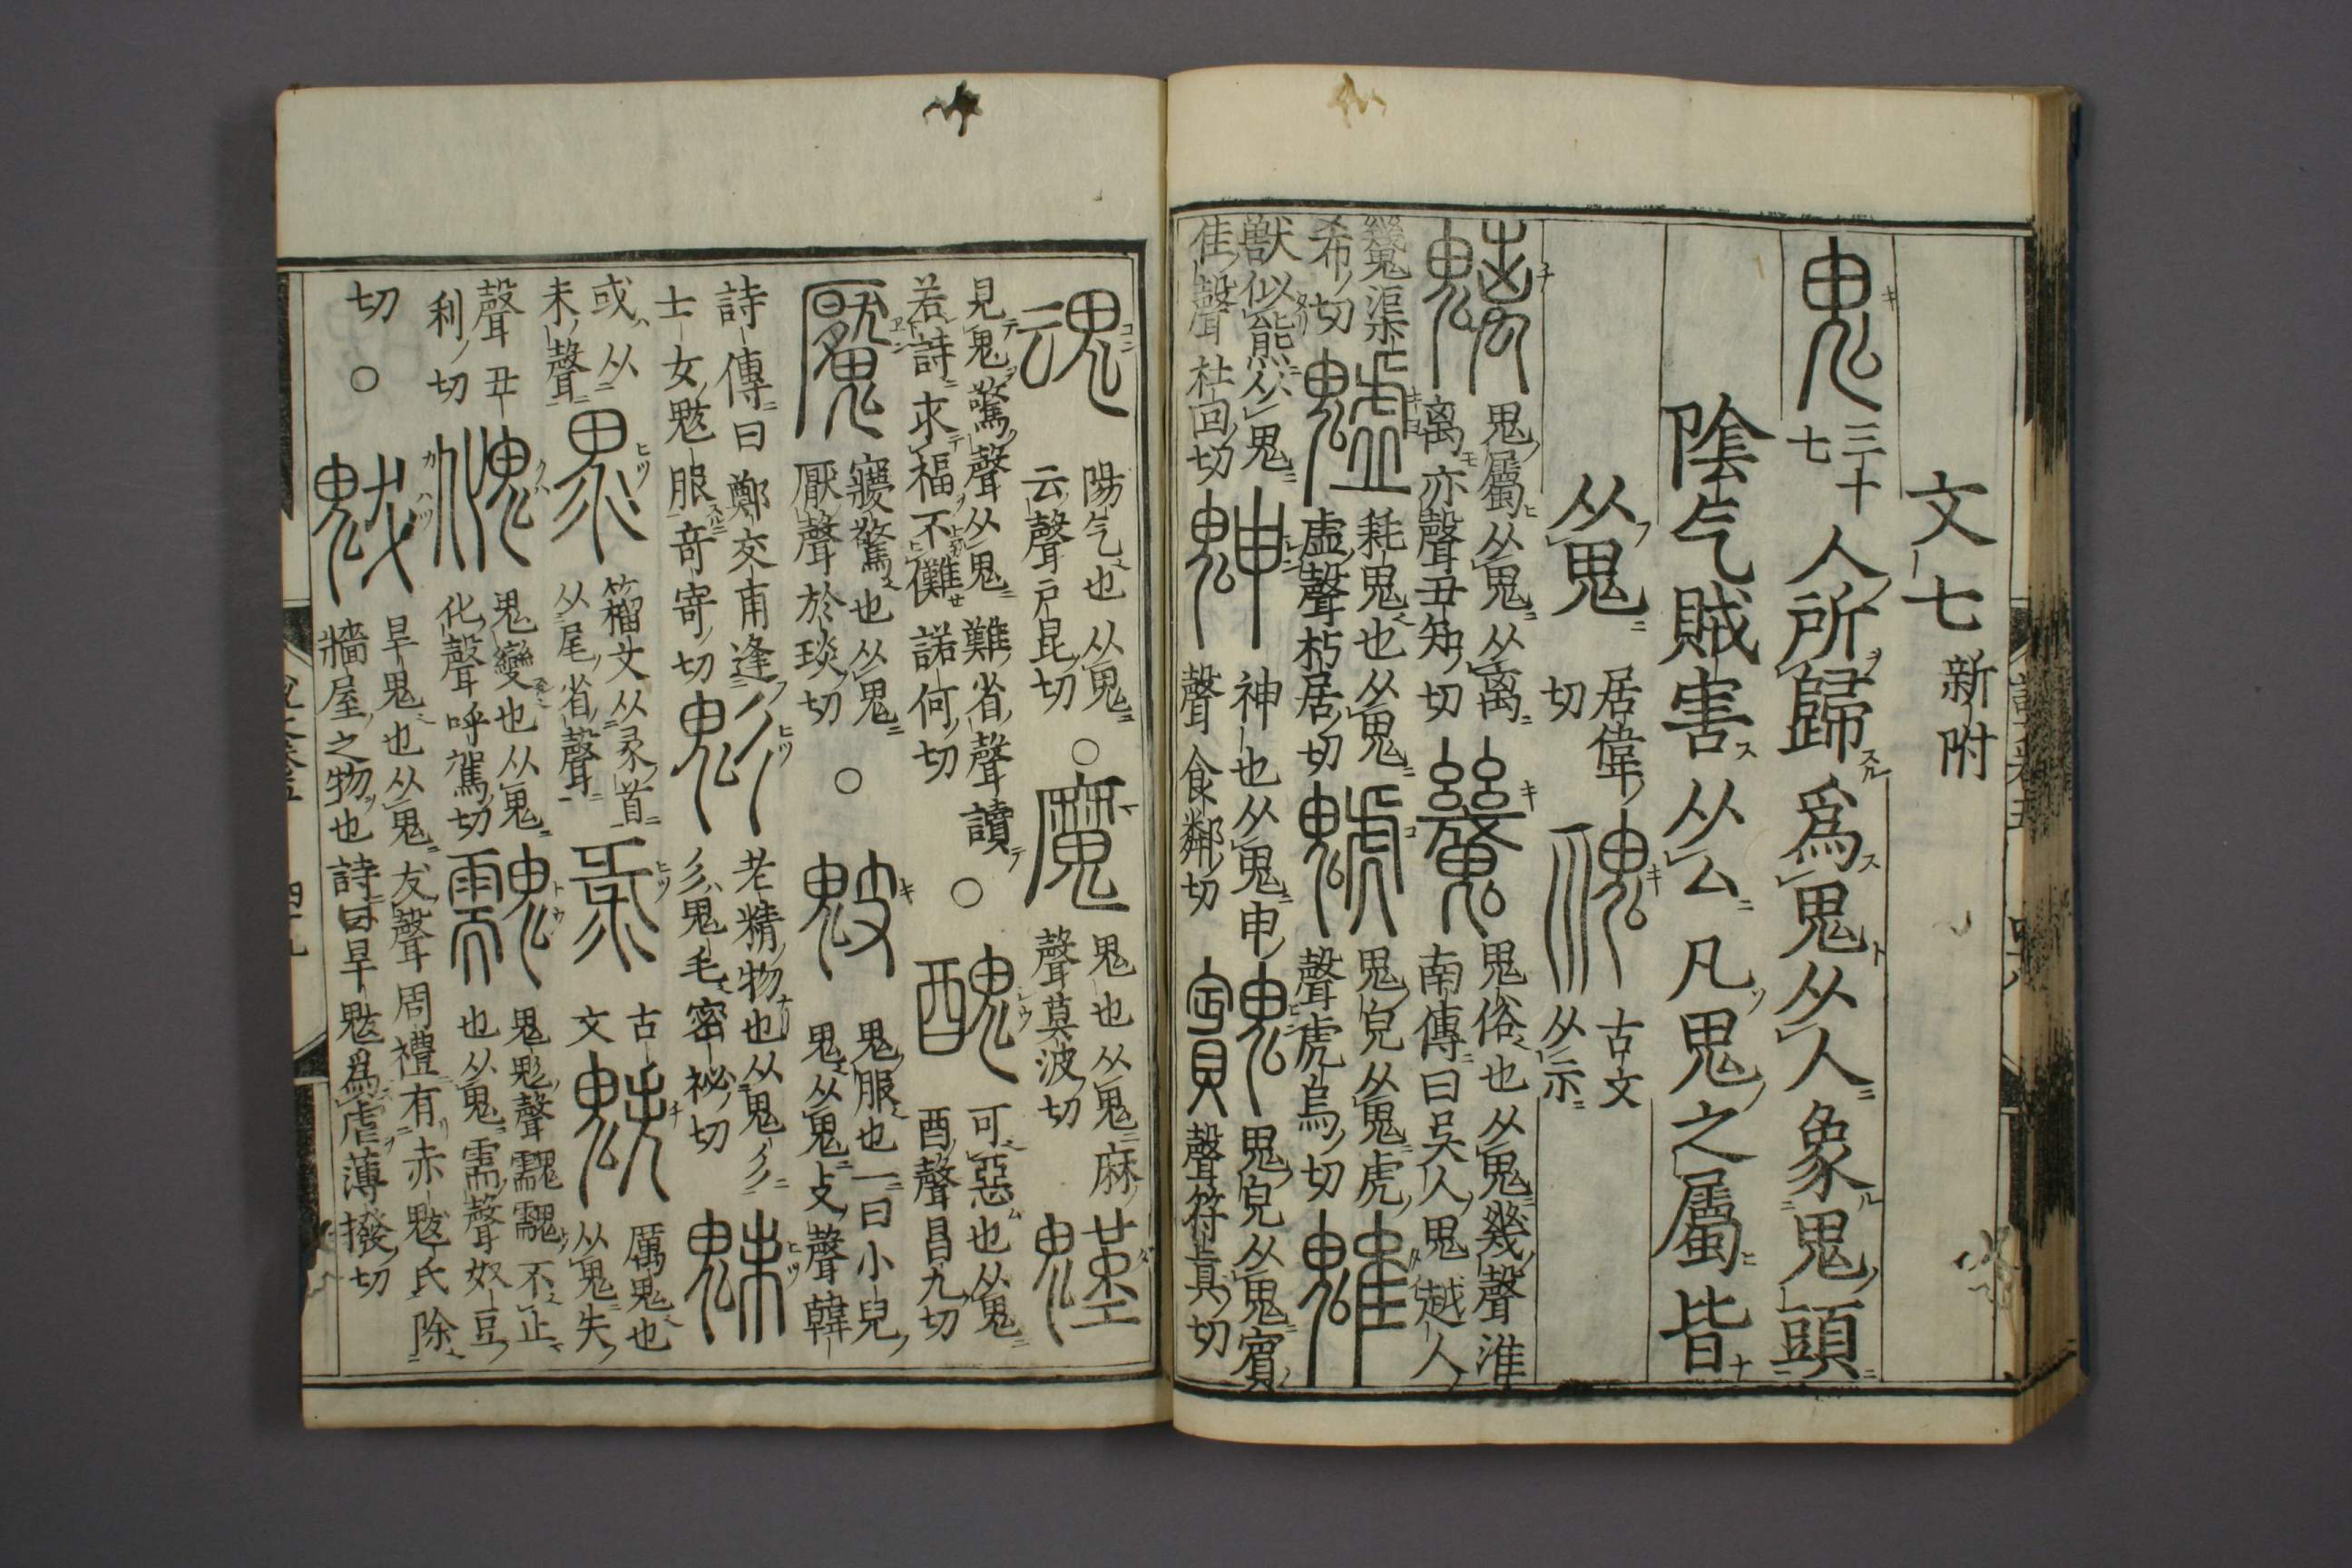 文七 新附
鬼 三十七 人所歸爲鬼从人象鬼頭
陰气賊害从厶凡鬼之屬皆
从鬼 居偉切 𩲡 古文从示
魑 鬼屬从鬼从离离亦聲丑知切 魕 鬼俗也从鬼幾聲淮南傳曰吳人鬼越人
魕渠希切 魖 耗鬼也从鬼虛聲朽居切 䰧 鬼皃从鬼虎聲虎烏切 魋
獸似熊从鬼隹聲杜回切 䰠 神也从鬼申聲食鄰切 𩴱 鬼皃从鬼賓聲符真切
魂 陽气也从鬼云聲户昆切 ○ 魔 鬼也从鬼麻聲莫波切
見鬼驚聲从鬼難省聲讀若詩求福不儺諾何切 ○ 醜 可惡也从鬼酉聲昌九切
魘 寱驚也从鬼厭聲於琰切 ○ 鬾 鬼服也一曰小兒鬼从鬼支聲韓
詩傳曰鄭交甫逢二士女魃服奇寄切 鬽 老精物也从鬼彡彡鬼毛密祕切 魅
或从未聲 籀文从彖首从尾省聲 古文 𩲃 厲鬼也从鬼失
聲丑利切 魤 鬼變也从鬼化聲呼駕切 䰰 鬼鬽聲䰰䰰不止也从鬼需聲奴豆
切 ○ 魃 旱鬼也从鬼犮聲周禮有赤魃氏除牆屋之物也詩曰旱魃爲虐薄撥切